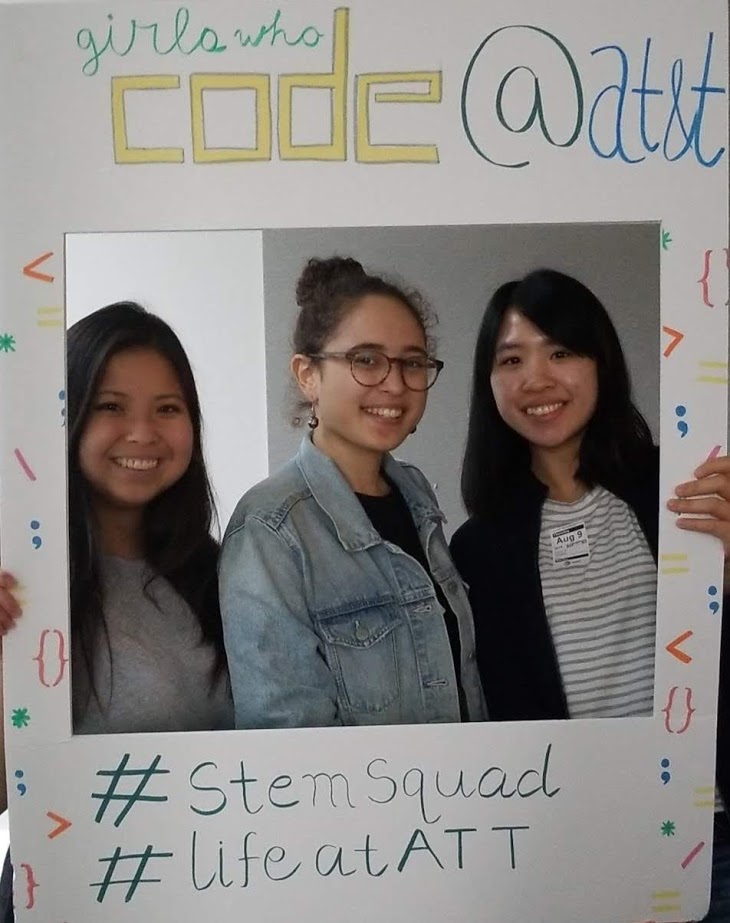 girls who
code @ at&t
Aug 9
#StemSquad
#lifeatATT